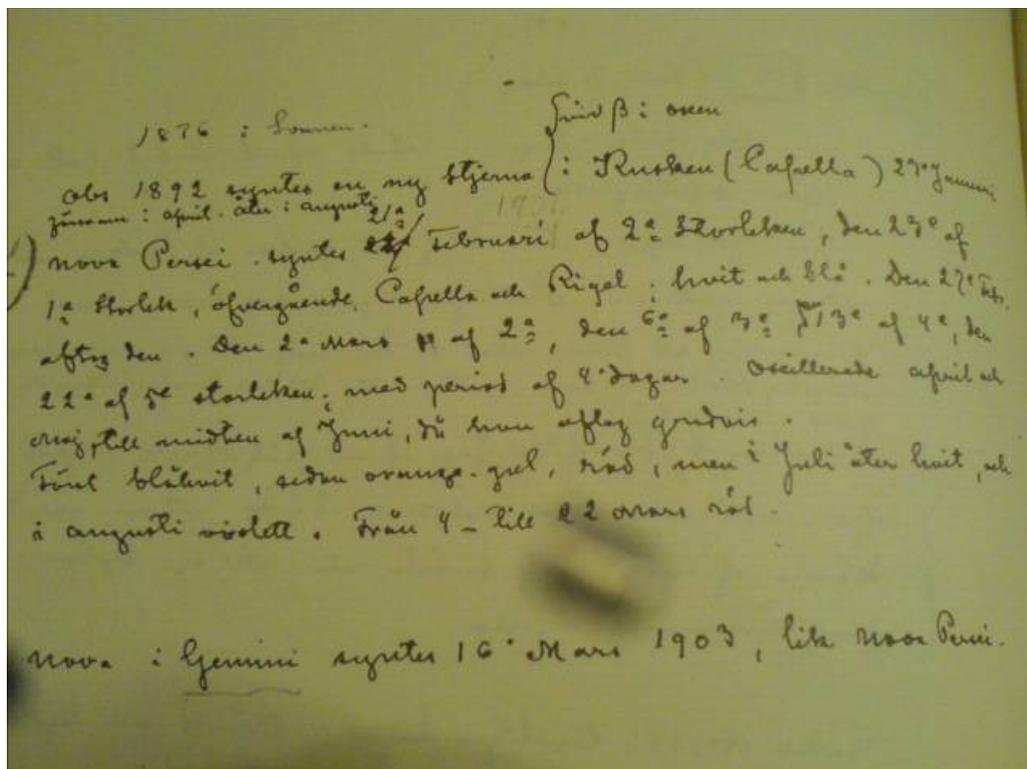 1876 i Svanen.
invid β i oxen
obs 1892 syntes en ny Stjerna i Kusken (Capella) 23e Januari
försvann i april. åter i augusti
21a
Nova Persei syntes Februari af 2a Storleken, den 23e af
1a Storlek, öfvergående Capella och Rigel, hvit och blå. Den 27e Febr.
aftog den. Den 2a Mars af 2a, den 6a af 3a, den 13e af 4e, den
22a af 5e storleken; med period af 4a dagar. Oscillerade april och
Maj, till midten af Juni, då hon aftog gradvis.
Först blåhvit, sedan orange-gul, röd, men i Juli åter hvit, och
i augusti violett. Från 4- till 22 Mars röd.
Nova i Gemini syntes 16e Mars 1903, lik Nova Persei.